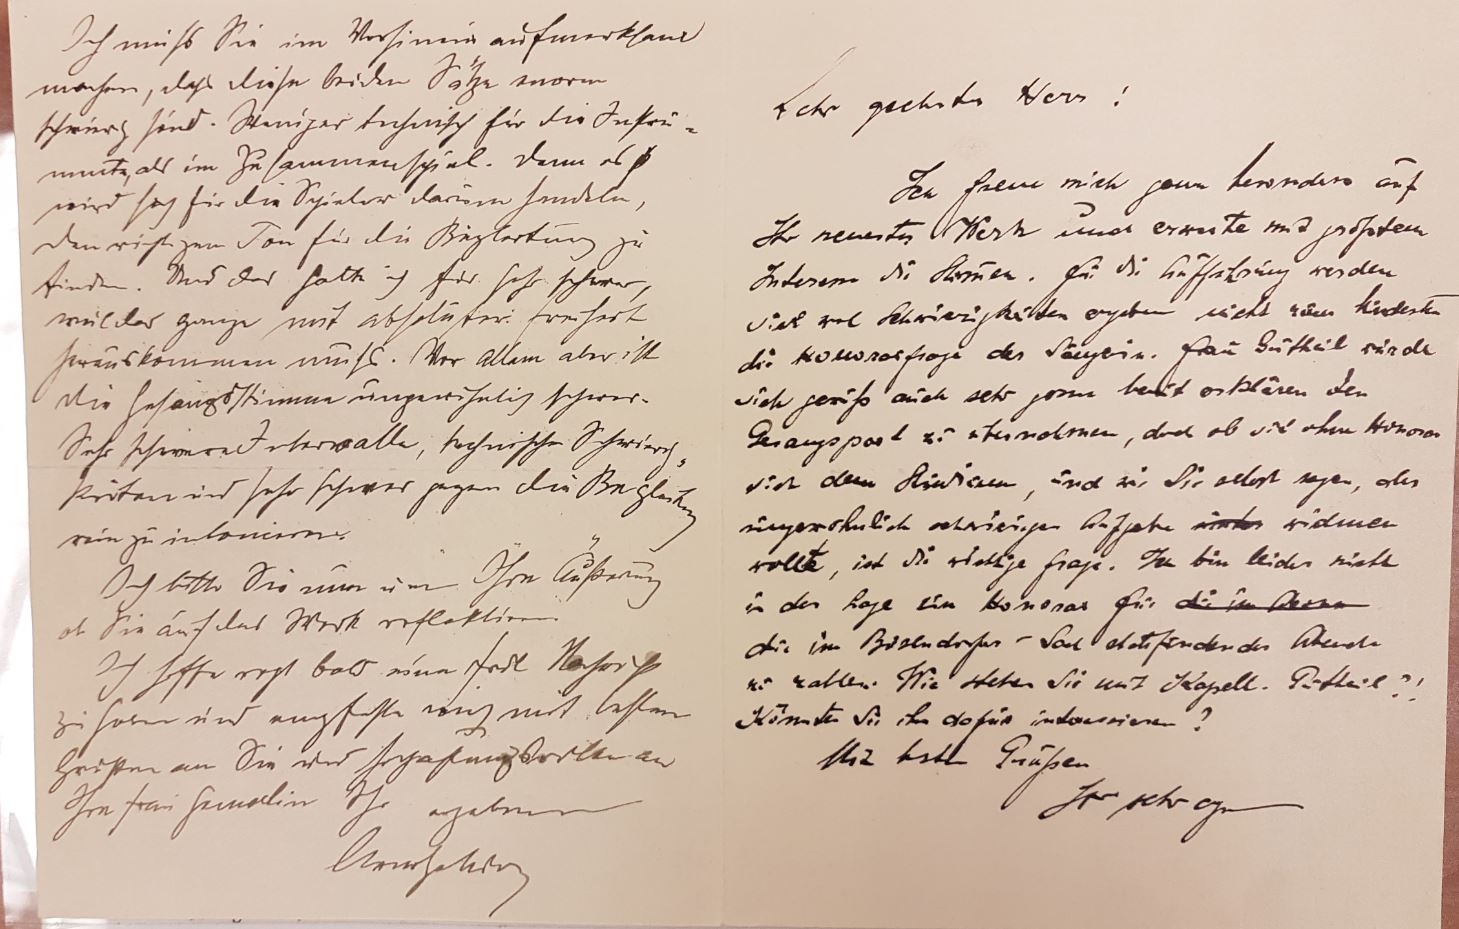 Ich muß Sie im Vorhinein aufmerksam
machen, daß diese beiden Sätze enorm
schwierig sind. Weniger technisch für die Instru-
mente, als im Zusammenspiel. Denn es
wird sich für die Spieler darum handeln,
den richtigen Ton für die Begleitung zu
finden. Und das halte ich für sehr schwer,
weil das ganze mit absoluter Freiheit
herauskommen muß. Vor allem aber ist
die Gesangsstimme ungewöhnlich schwer.
Sehr schwere Intervalle, technische Schwierig-
keiten und sehr schwer gegen die Begleitung
rein zu intonieren.
Ich bitte Sie nun um Ihre Äußerung
ob Sie auf das Werk reflektieren.
Ich hoffe recht bald eine Nachricht
zu haben und empfehle mich mit besten
Grüßen an Sie und Handküssen an
Ihre Frau Gemahlin Ihr ergebener
Arnold Schönberg
Sehr geehrter Herr!
Ich freue mich ganz besonders auf
Ihr neuestes Werk und erwarte mit größtem
Interesse die Stimmen. Für die Aufführung werden
sich wol Schwierigkeiten ergeben nicht zum mindesten
die Honorarfrage der Sängerin. Frau Gutheil würde
sich gewiß auch sehr gerne bereit erklären den
Gesangspart zu übernehmen, doch ob sie ohne Honorar
sich dem Studium, und wie Sie selbst sagen, der
ungewöhnlich schwierigen Aufgabe widmen
wollte, ist die wichtige Frage. Ich bin leider nicht
in der Lage ein Honorar für die im
die im Bösendorfer-Saal stattfindenden Abende
zu zahlen. Wie stehen Sie mit Kapell. Gutheil?!
Könnten Sie ihn dafür interessieren?
Mit besten Grüßen
Ihr sehr erg